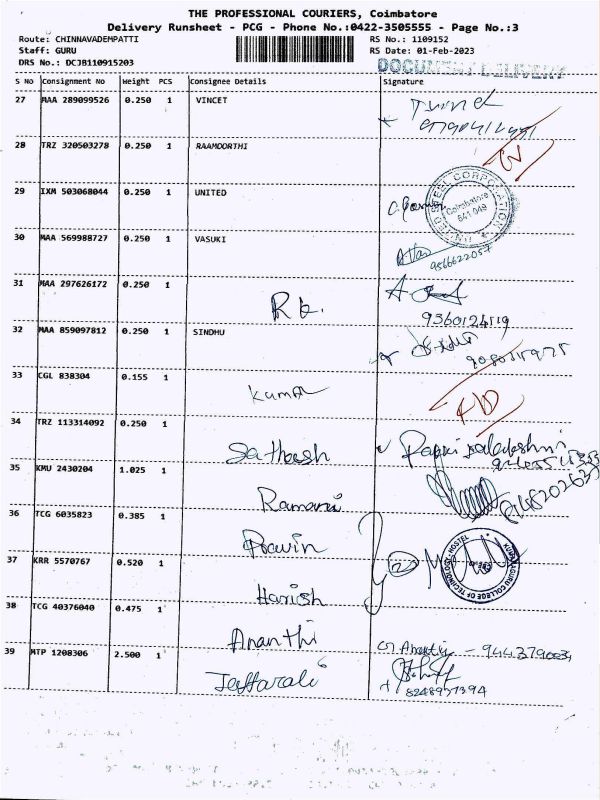 THE PROFESSIONAL COURIERS, Coimbatore
Delivery Runsheet - PCG - Phone No.:0422-3505555 - Page No.:3
Route: CHINNAVADEMPATTI RS No.: 1109152
Staff: GURU RS Date: 01-Feb-2023
DRS No.: DCJB110915203
DOCUMENT DELIVERY
S NO Consignment No Weight PCS Consignee Details Signature
27 MAA 289099526 0.250 1 VINCET
28 TRZ 320503278 0.250 1 RAAMOORTHI
29 IXM 503068044 0.250 1 UNITED
STEEL CORPORATION
Coimbatore
641 049
30 MAA 569988727 0.250 1 VASUKI
9566622057
31 MAA 297626172 0.250 1
Rk.
9360124119
32 MAA 859097812 0.250 1 SINDHU
33 CGL 838304 0.155 1
Kumar
34 TRZ 113314092 0.250 1
Sathesh
35 KMU 2430204 1.025 1
Ramani
36 TCG 6035823 0.385 1
Pravin
37 KRR 5570767 0.520 1
Harish
KUMARAGURU COLLEGE OF TECHNOLOGY HOSTEL
38 TCG 40376040 0.475 1
Ananthi
39 MTP 1208306 2.500 1
Jaffarali
8248957394